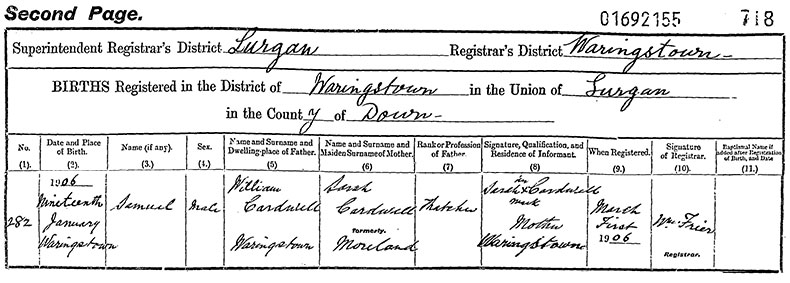 Second Page.
01692155 718
Superintendent Registrar's District Lurgan Registrar's District Waringstown
BIRTHS Registered in the District of Waringstown in the Union of Lurgan
in the County of Down
No. (1).
Date and Place of Birth. (2).
Name (if any). (3.)
Sex. (4.)
Name and Surname and Dwelling-place of Father. (5)
Name and Surname and Maiden Surname of Mother. (6)
Rank or Profession of Father. (7)
Signature, Qualification, and Residence of Informant. (8)
When Registered. (9.)
Signature of Registrar. (10.)
Baptismal Name if added after Registration of Birth, and Date (11.)
282
1906
Nineteenth
January
Waringstown
Samuel
Male
William
Cardwell
Waringstown
Sarah
Cardwell
formerly.
Moreland
Thatcher
Sarah X Cardwell
mark
Mother
Waringstown
March
First
1906
Wm. Frier
Registrar.